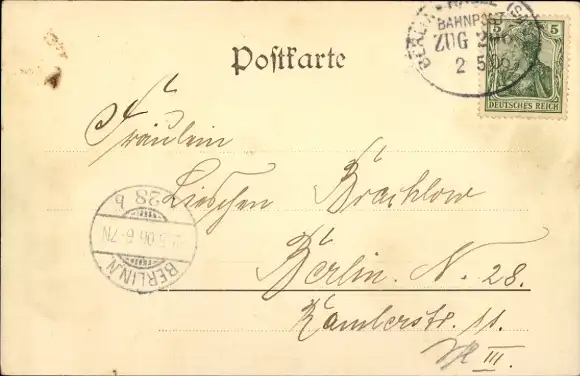 BERLIN
BAHNPOST
ZUG
2 5 06
5 5
DEUTSCHES REICH
Postkarte
Fräulein
Lieschen Brachlow
Berlin. N. 28.
28 b
5.06 6-7N
BERLIN.N
11.
III.